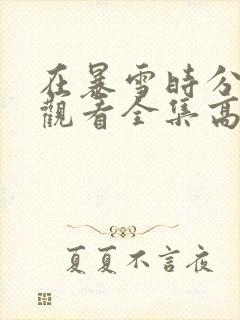 在暴雪時分
觀看全集高
夏夏不言夜